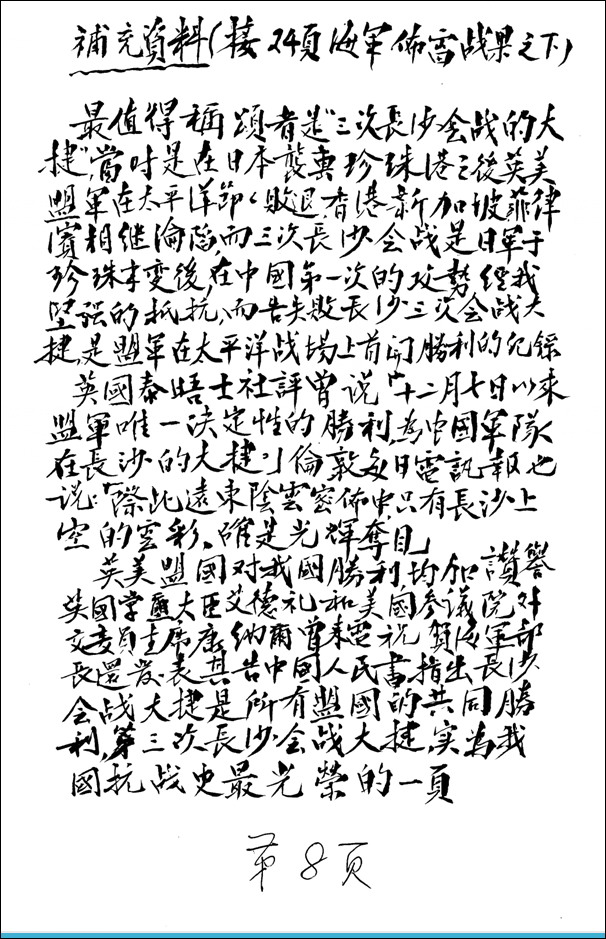 補充資料(接24頁海軍佈雷战果之下)
最值得稱頌者是"三次長沙会战的大
捷",當时是在日本襲擊珍珠港之後英美
盟軍在太平洋節々敗退,香港新加坡菲律
濱相继淪陷,而三次長沙会战是日軍于
珍珠事变後,在中國第一次的攻勢,經我
坚强的抵抗,而告失敗長沙三次会战大
捷,是盟軍在太平洋战場上首開勝利的纪録
英國泰晤士社評曾说「十二月七日以來
盟軍唯一决定性的勝利,為中國軍隊
在長沙的大捷。」倫敦每日電訊報也
说:「際此遠東陰雲密佈中,只有長沙上
空的雲彩、確是光輝奪目」
英美盟國对我國勝利,均加讚譽
英國掌璽大臣艾德礼和美國参议院外
交委員主席康納爾曾来電祝賀海軍部
長還發表其告中國人民書指出長沙
会战大捷是所有盟國的共同勝
利,第三次長沙会战大捷,实為我
國抗战史最光榮的一頁
第8页